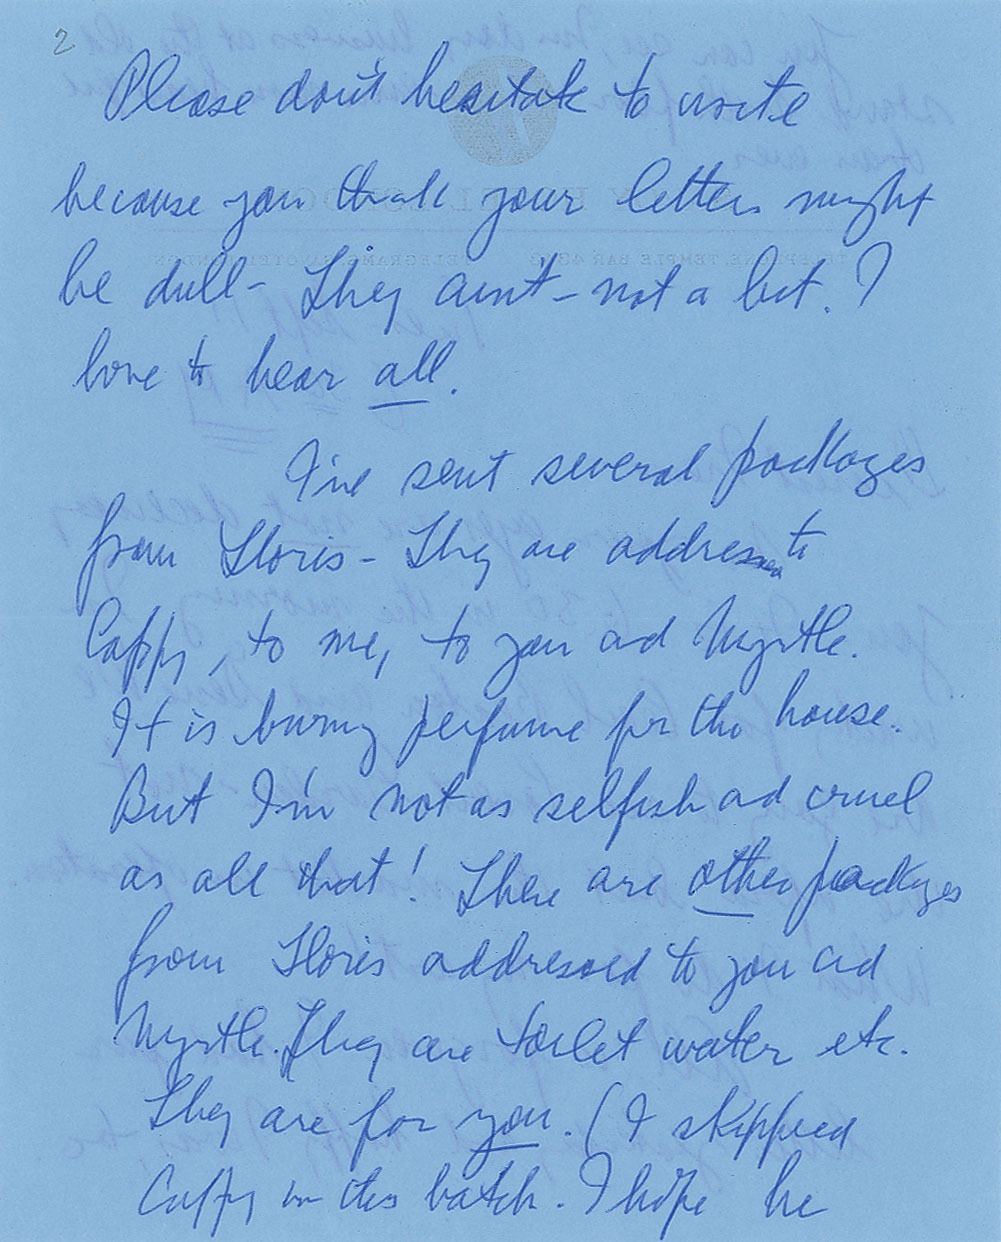 2
Please don't hesitate to write
because you think your letters might
be dull - They aint - not a bit. I
love to hear all.
I've sent several packages
from Floris - They are addressed to
Caffy, to me, to you ad Myrtle.
It is burning perfume for the house.
But I'm not as selfish ad cruel
as all that! There are other packages
from Floris addressed to you ad
Myrtle. They are toilet water etc.
They are for you. (I skipped
Caffy in this batch. I hope he